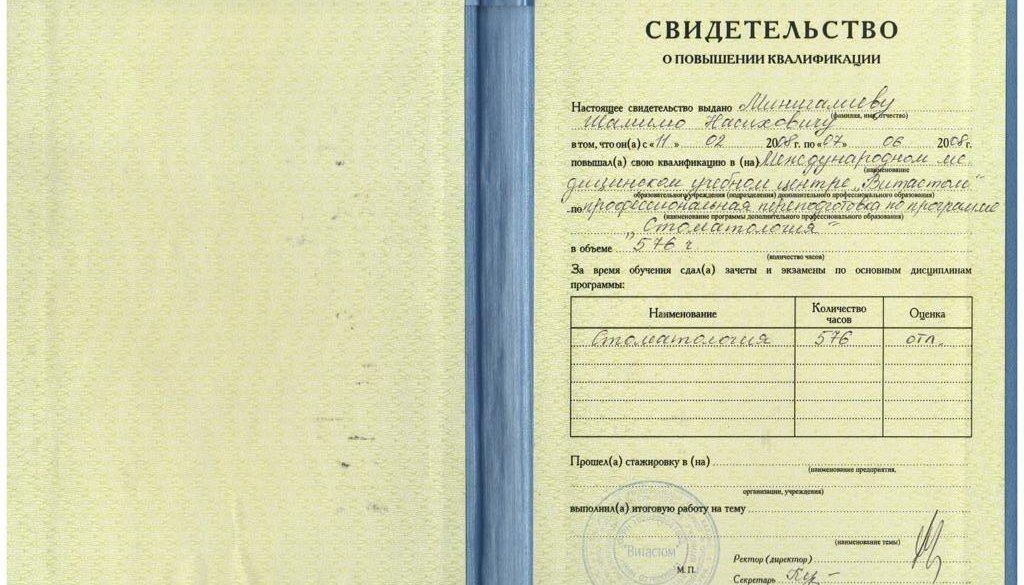 СВИДЕТЕЛЬСТВО
О ПОВЫШЕНИИ КВАЛИФИКАЦИИ
Настоящее свидетельство выдано Мингалиеву
(фамилия, имя, отчество)
Шамилю Насиховичу
в том, что он(а) с «11» 02 2008 г. по «07» 06 2008 г.
повышал(а) свою квалификацию в (на) Международном ме-
(наименование
дицинском учебном центре „Витастом"
образовательного учреждения (подразделения) дополнительного профессионального образования)
по профессиональная переподготовка по программе
(наименование программы дополнительного профессионального образования)
„Стоматология"
в объеме 576 ч
(количество часов)
За время обучения сдал(а) зачеты и экзамены по основным дисциплинам
программы:
Наименование Количество часов Оценка
Стоматология 576 отл.
Прошел(а) стажировку в (на)
(наименование предприятия,
организации, учреждения)
выполнил(а) итоговую работу на тему
(наименование темы)
"Витастом"
М.П.
Ректор (директор)
Секретарь